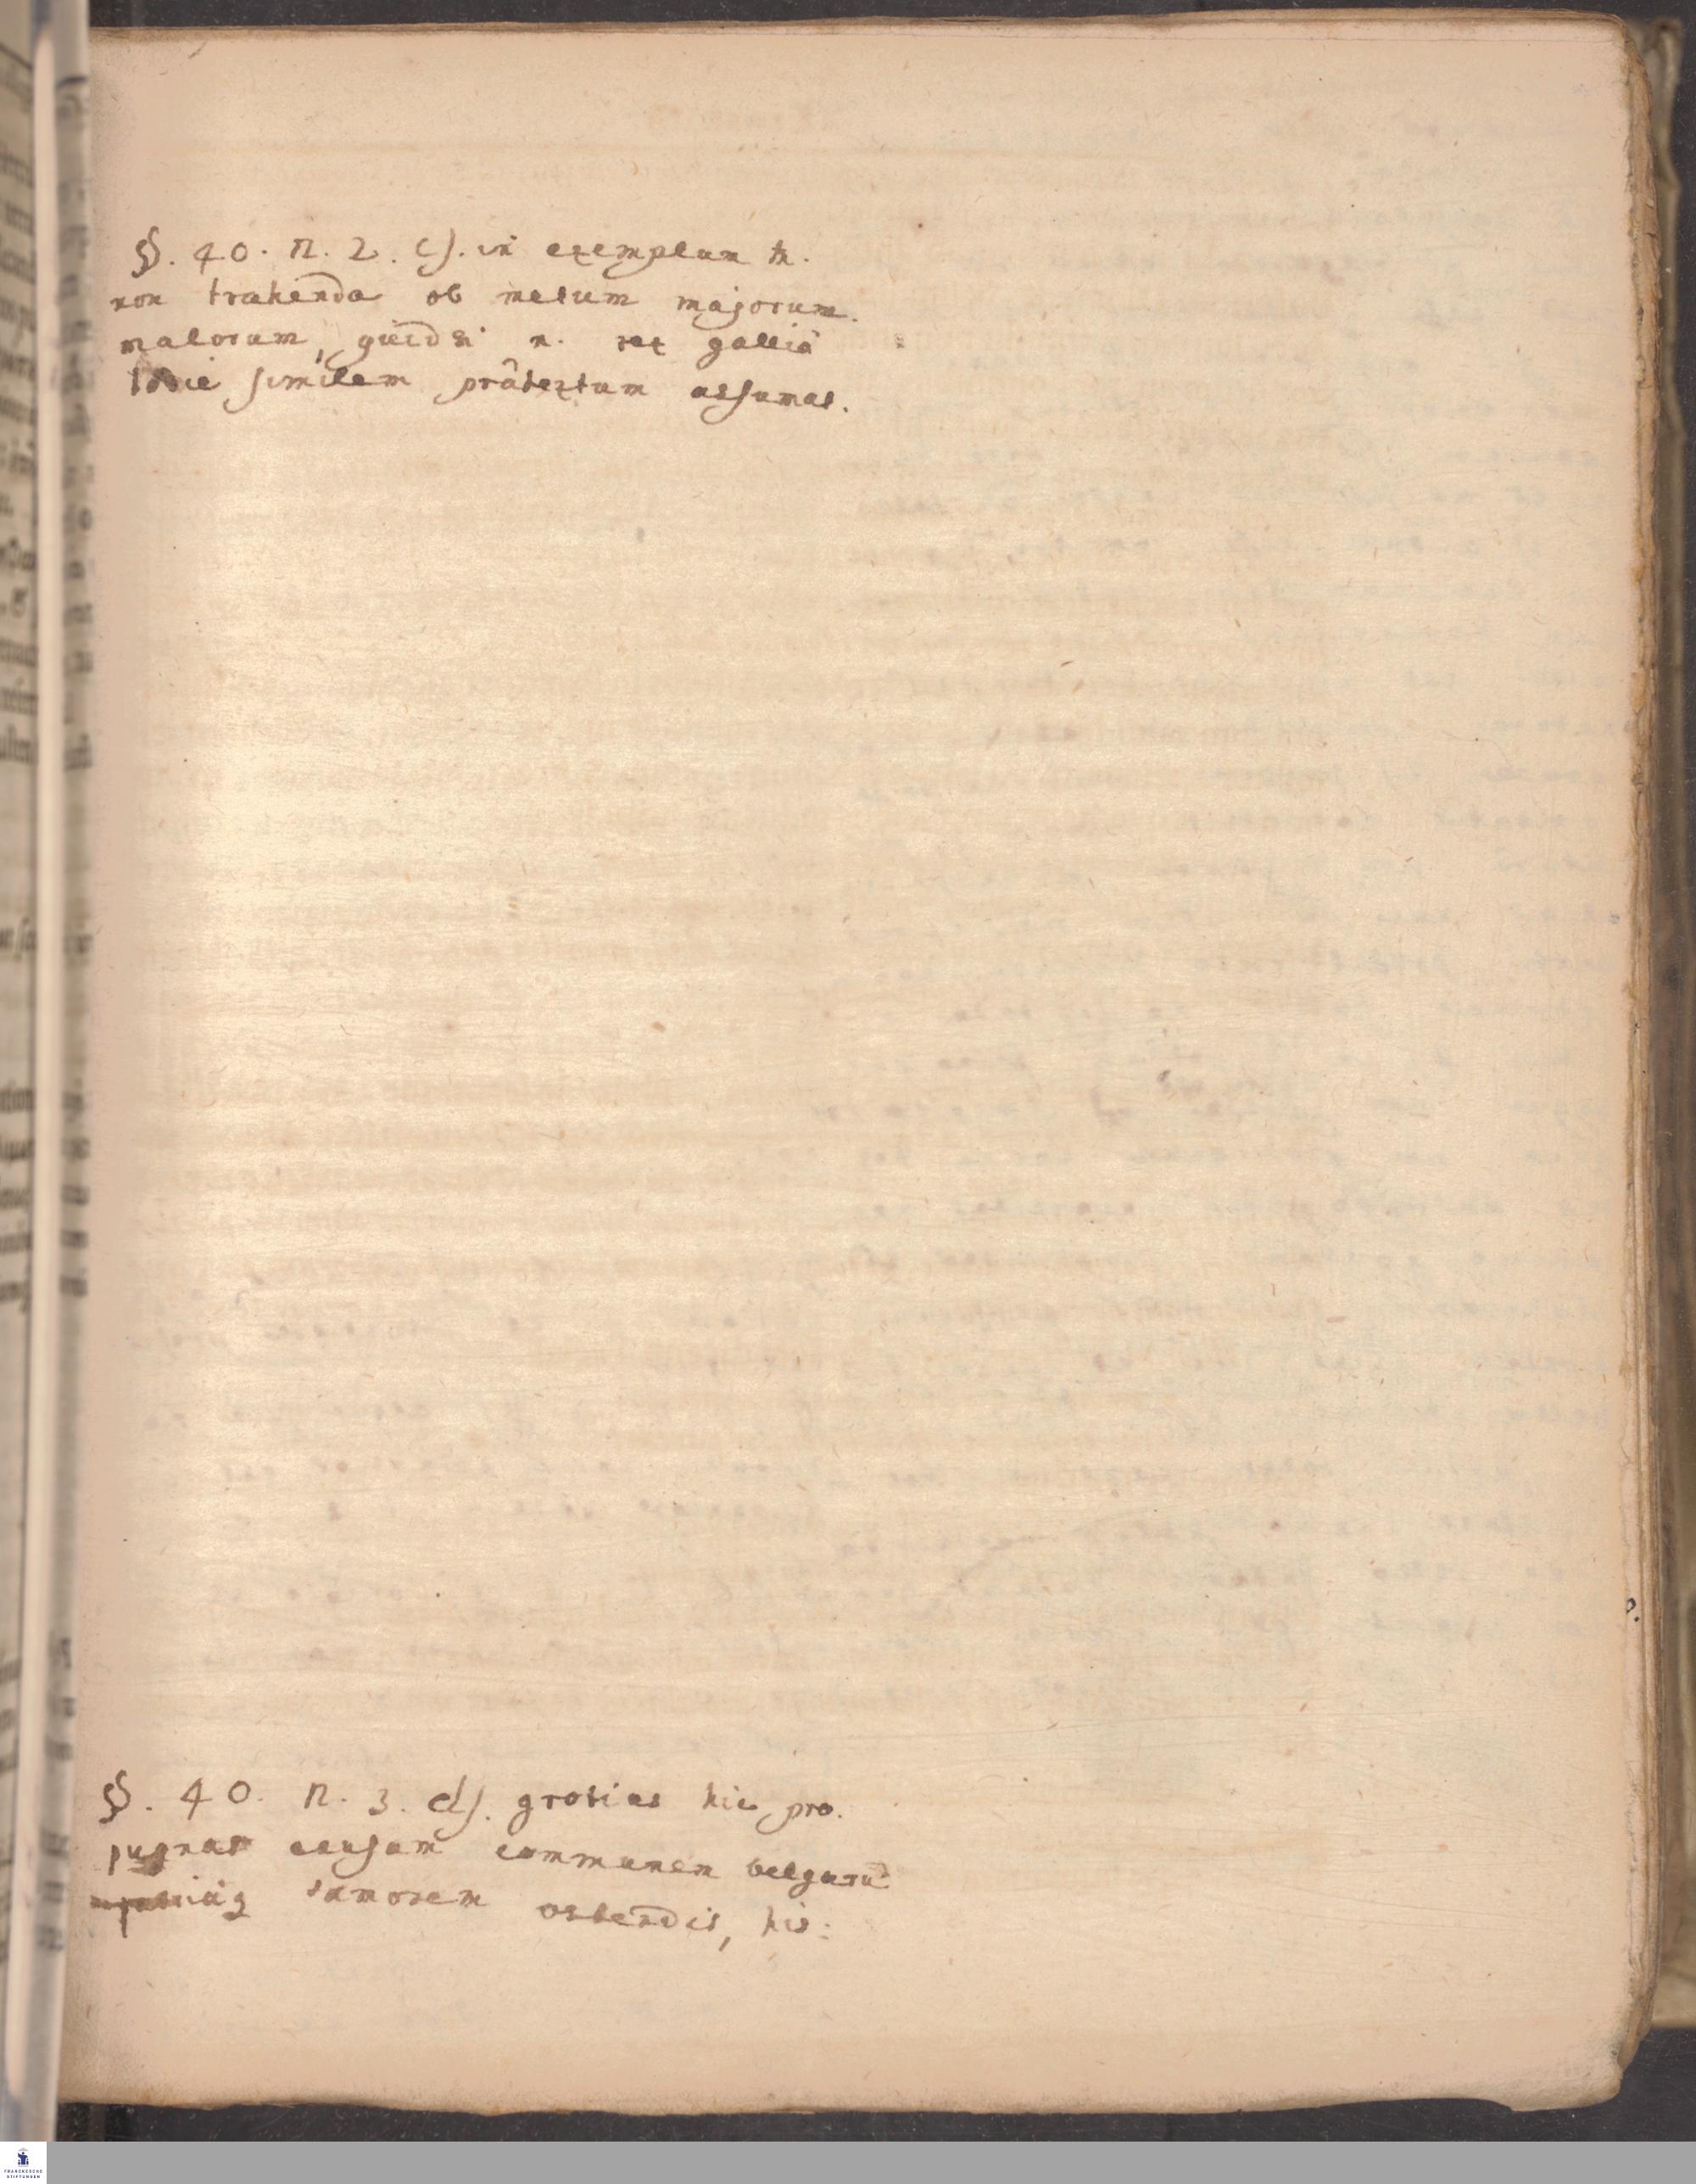 §. 40. n. 2. c). in exemplum tn.
non trahenda ob metum majorum.
malorum, quid si n. rex galliä
hodie similem prätextum assumat.
§. 40. n. 3. d). grotius hic pro.
pugnat causam communem belgarū
amorem ostendit, his:
FRANCKESCHE
STIFTUNGEN